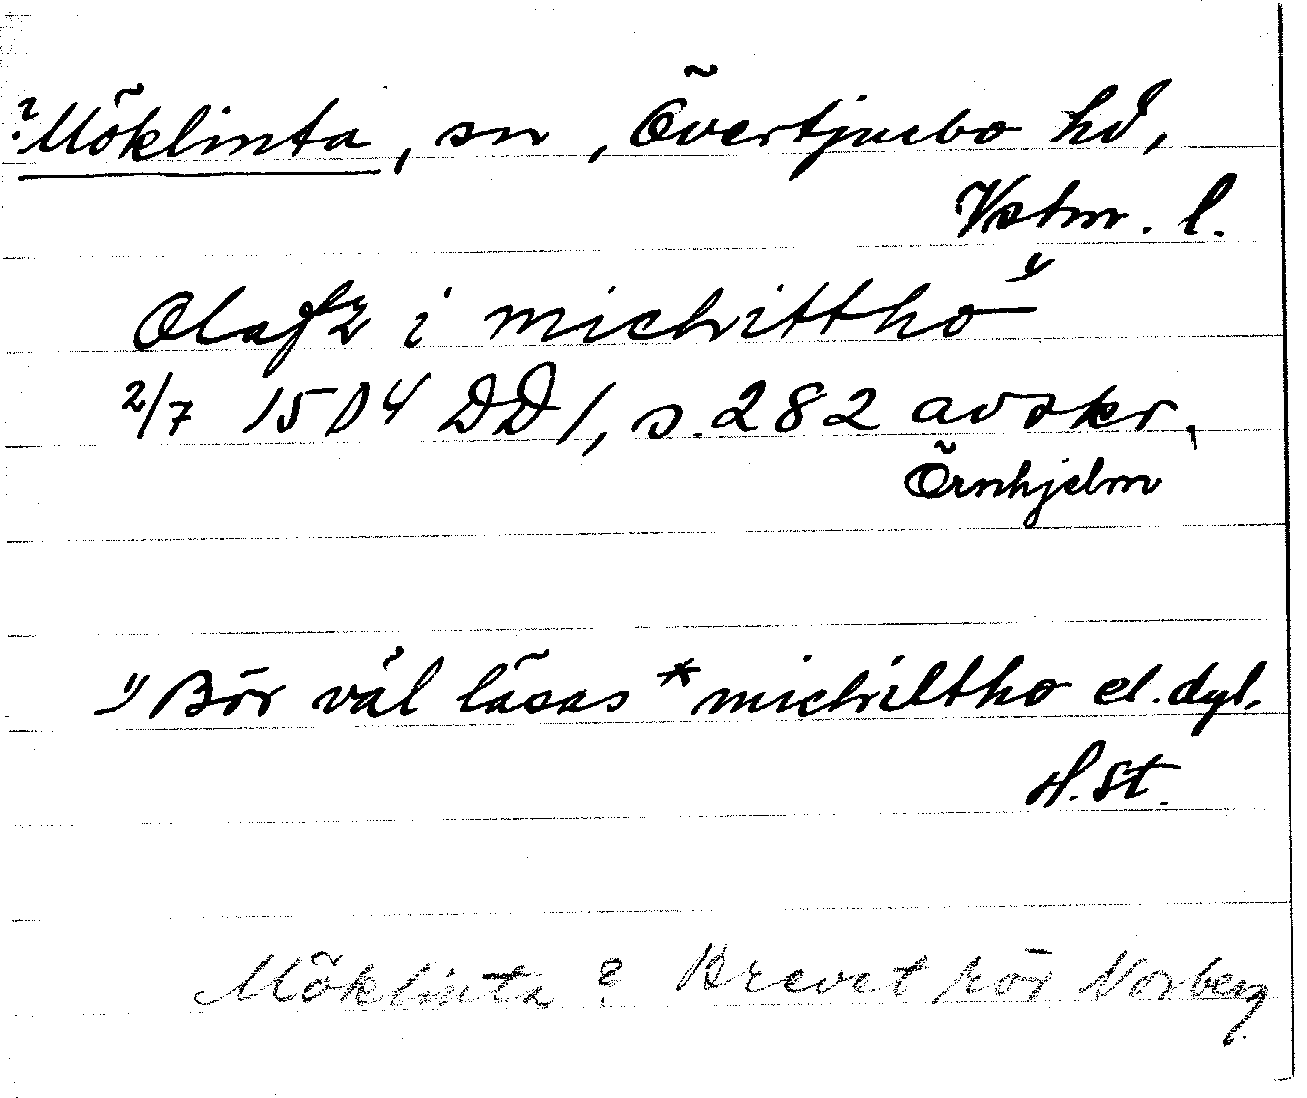 ? Möklinta, sn, Övertjurbo hd,
Vstm. l.
Olaf z i michvittho 1)
2/7 1504 DD 1, s. 282 avskr.
Örnhjelm
1) Bör väl läsas *michviltho el. dyl.
H. St.
Möklinta? Brevet rör Norberg